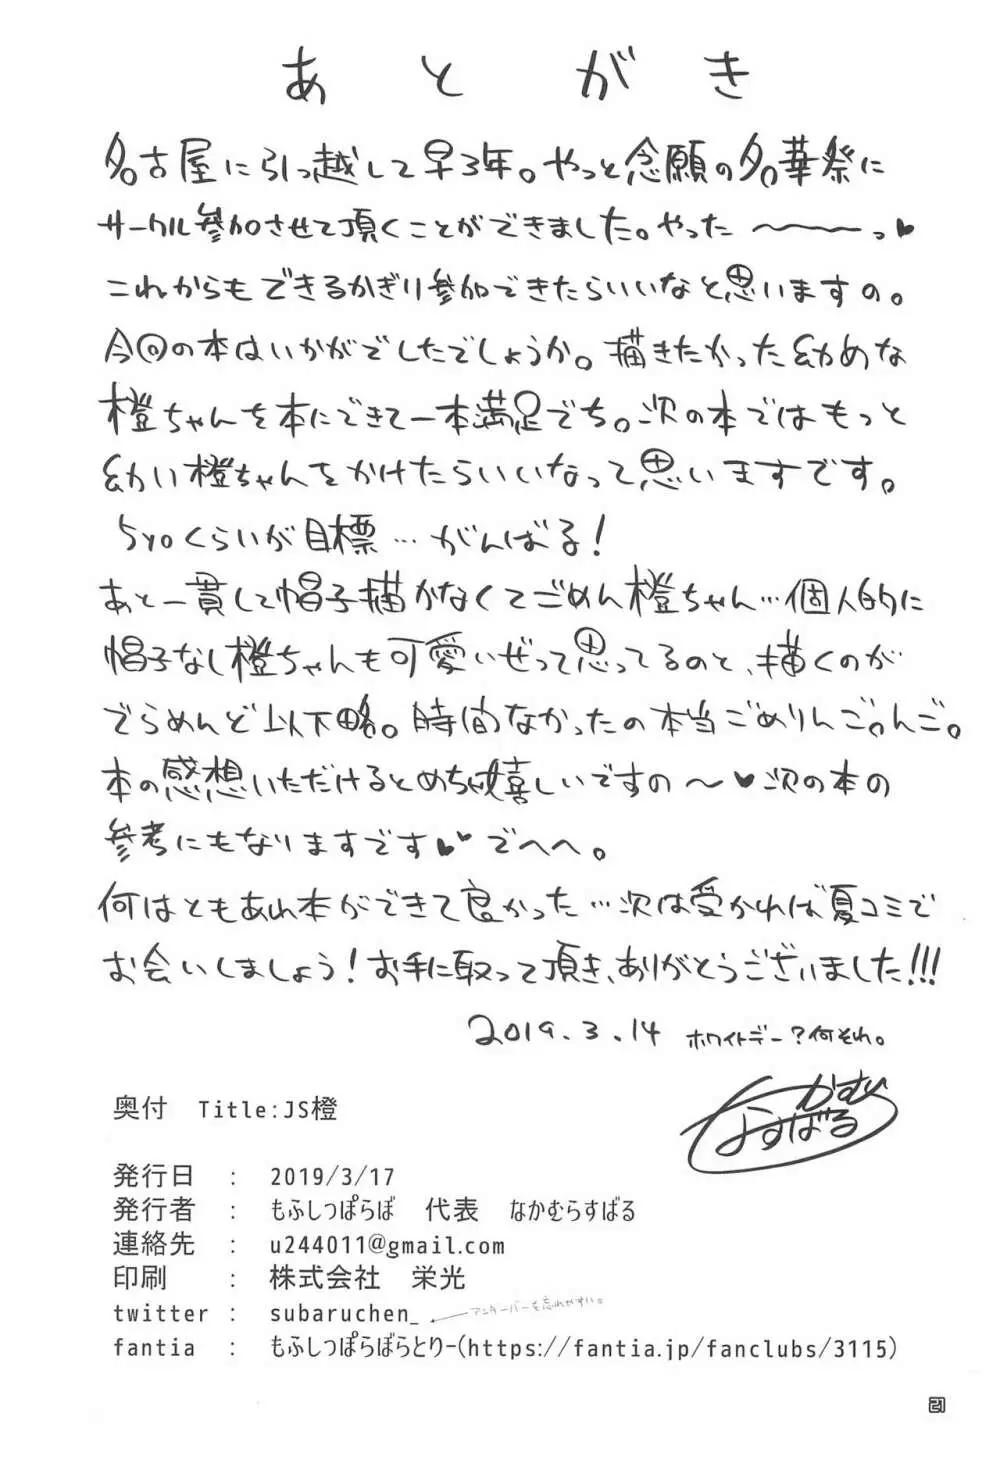 あとがき
名古屋に引っ越して早3年。やっと念願の名華祭に
サークル参加させて頂くことができました。やった〜〜〜っ♥
これからもできるかぎり参加できたらいいなと思いますの。
今回の本はいかがでしたでしょうか。描きたかった幼めな
橙ちゃんを本にできて一本満足でち。次の本ではもっと
幼い橙ちゃんをかけたらいいなって思いますです。
5yoくらいが目標…がんばる!
あと一貫して帽子描かなくてごめん橙ちゃん…個人的に
帽子なし橙ちゃんも可愛いぜって思ってるのと、描くのが
でらめんど以下略。時間なかったの本当ごめりんご。んご。
本の感想いただけるとめちゃ嬉しいですの〜♥次の本の
参考にもなりますです♥♥でへへ。
何はともあれ本ができて良かった…次は受かれば夏コミで
お会いしましょう!お手に取って頂き、ありがとうございました!!!
2019.3.14 ホワイトデー?何それ。
なかむらすばる
奥付 Title:JS橙
発行日 : 2019/3/17
発行者 : もふしっぽらぼ 代表 なかむらすばる
連絡先 : u244011@gmail.com
印刷 : 株式会社 栄光
twitter : subaruchen_ ←アンダーバーを忘れやすい。
fantia : もふしっぽらぼらとりー(https://fantia.jp/fanclubs/3115)
21